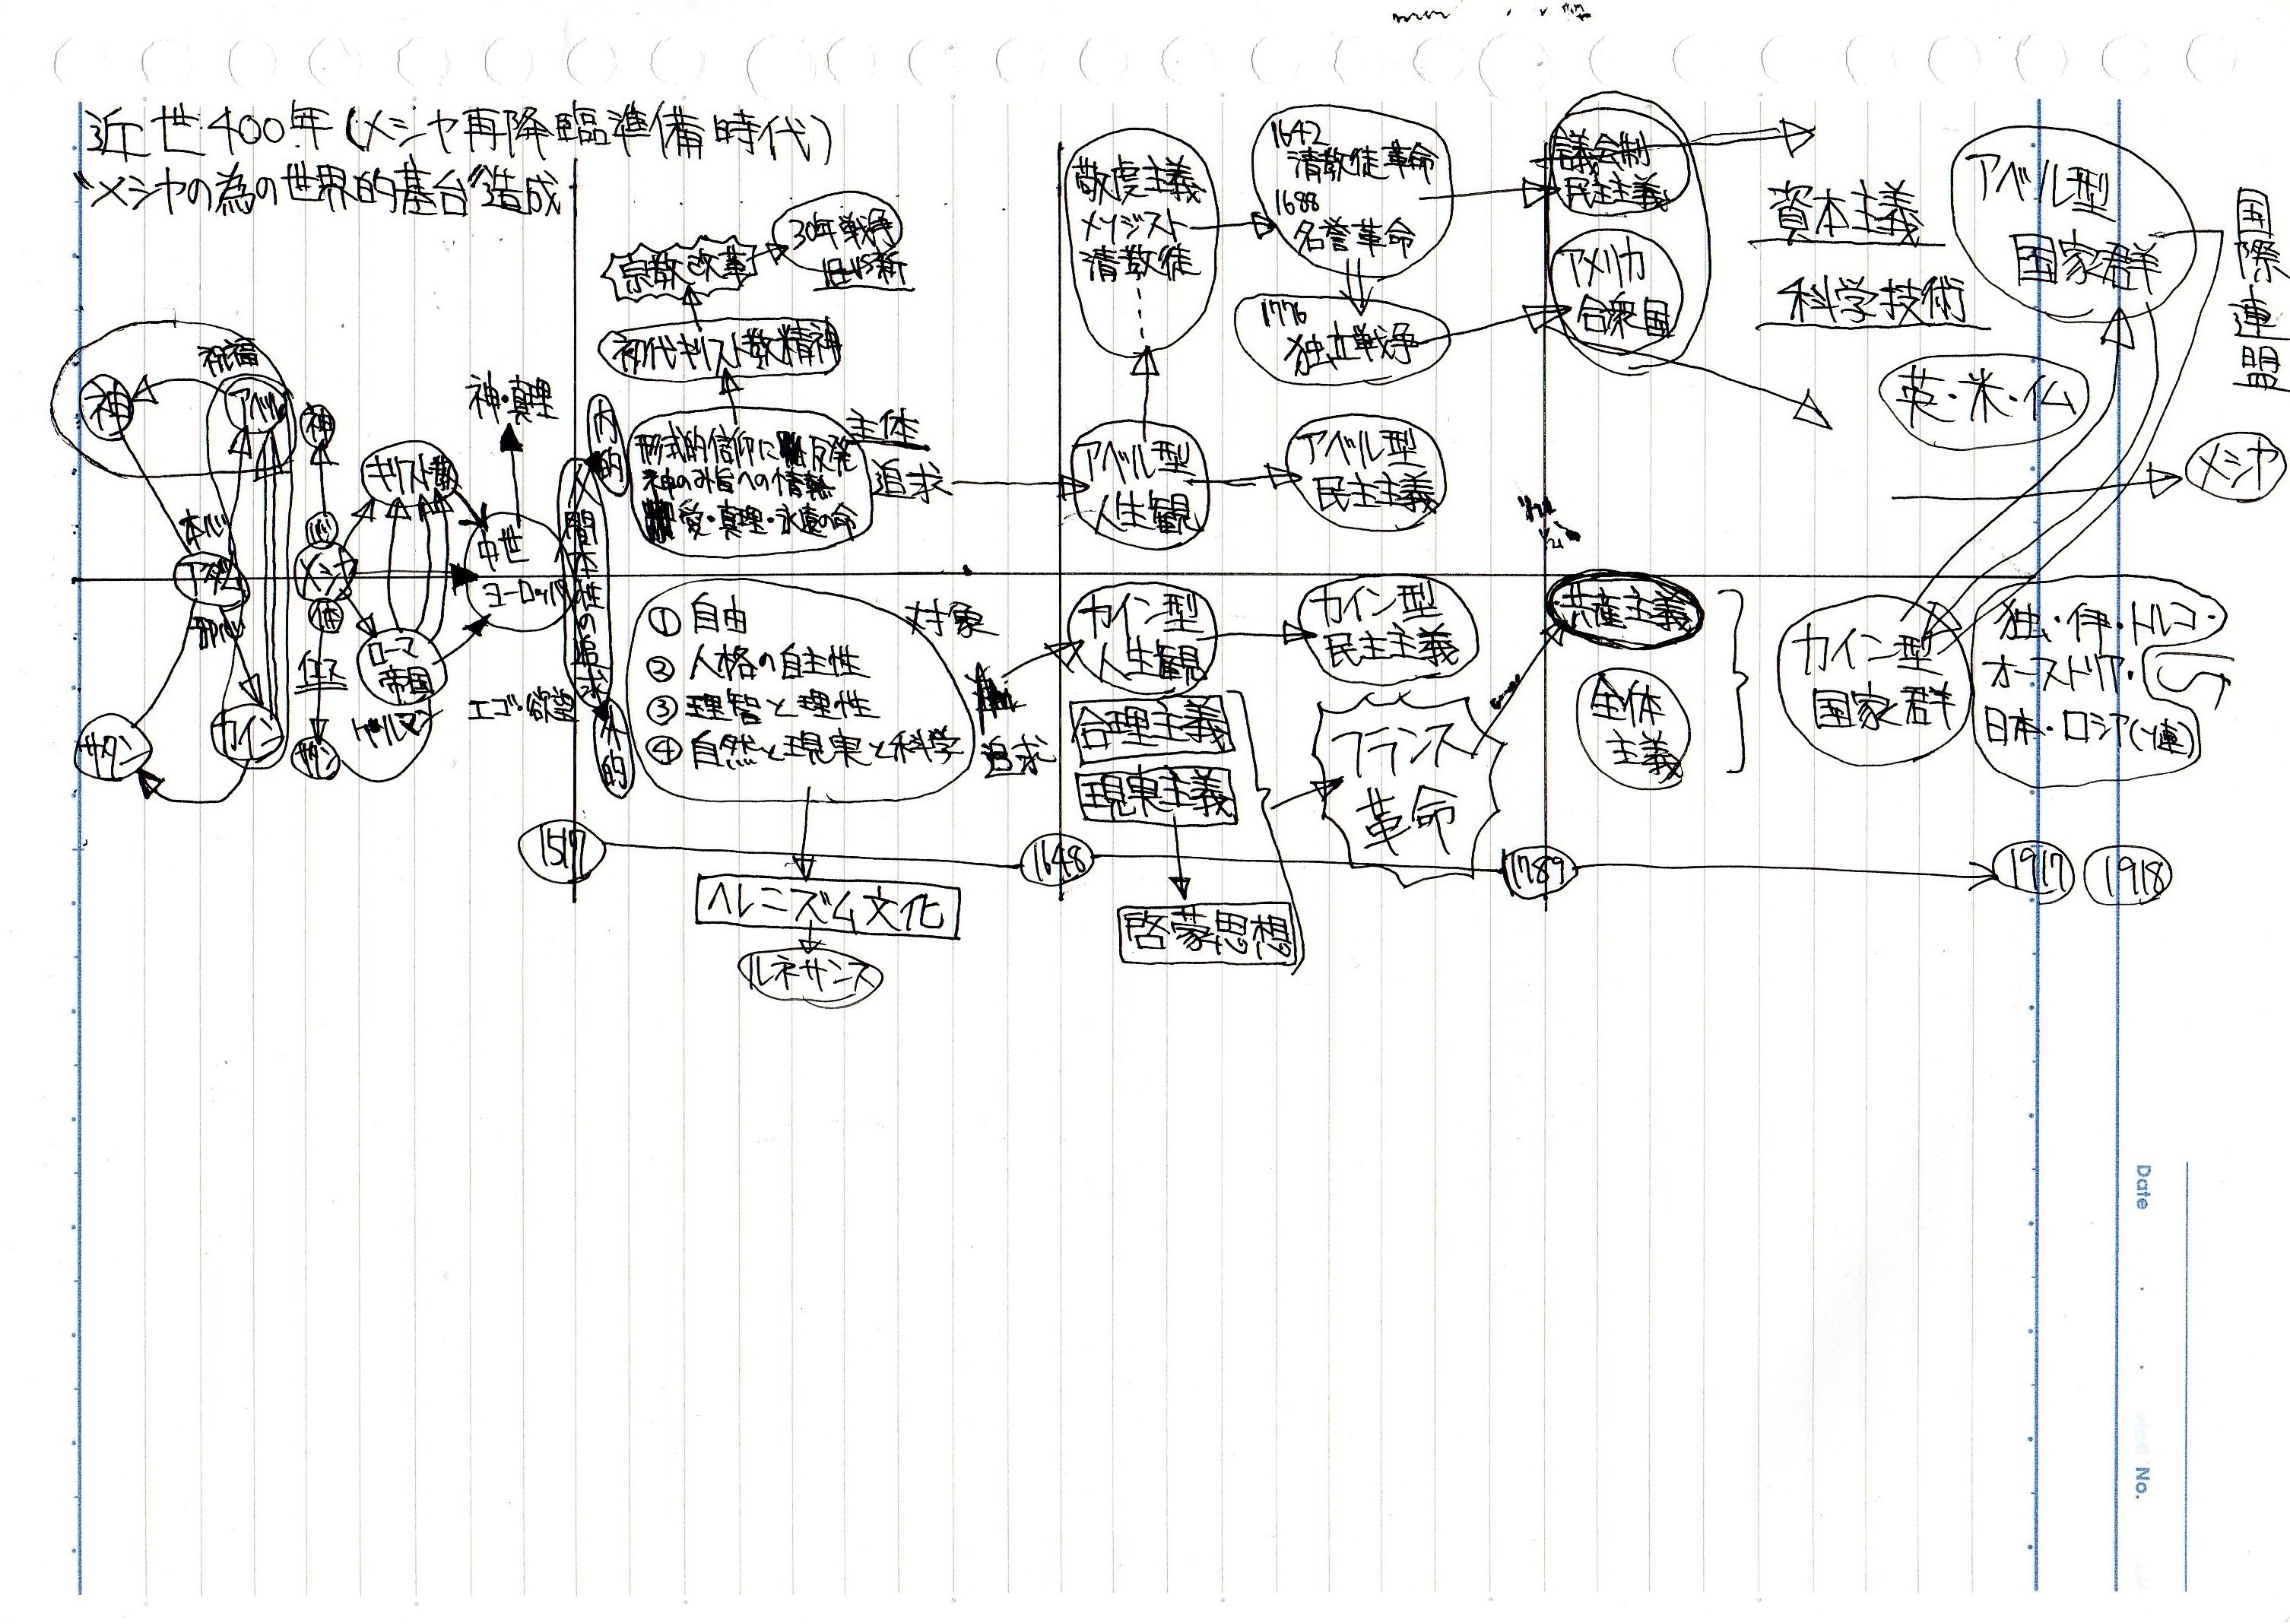 近世400年(メシヤ再降臨準備時代)
"メシヤの為の世界的基台"造成
祝福
神
アベル
本心
アダム
邪心
サタン
カイン
神
心
メシヤ
体
サタン
キリスト教
ローマ
帝国
ゲルマン
神・真理
中世
ヨーロッパ
エゴ・欲望
人間本性の追求
内的
外的
30年戦争
旧VS新
宗教改革
初代キリスト教精神
形式的信仰に反発
神のみ旨への情熱
愛・真理・永遠の命
主体
追求
① 自由
② 人格の自主性
③ 理智と理性
④ 自然と現実と科学
対象
追求
ヘレニズム文化
ルネサンス
敬虔主義
メソジスト
清教徒
アベル型
人生観
カイン型
人生観
合理主義
現実主義
啓蒙思想
1642
清教徒革命
1688
名誉革命
1776
独立戦争
アベル型
民主主義
カイン型
民主主義
フランス
革命
議会制
民主主義
アメリカ
合衆国
共産主義
全体
主義
資本主義
科学技術
アベル型
国家群
英・米・仏
国際連盟
メシヤ
カイン型
国家群
独・伊・トルコ・
オーストリア・
日本・ロシア(ソ連)
1517
1648
1789
1917
1918
Date
No.